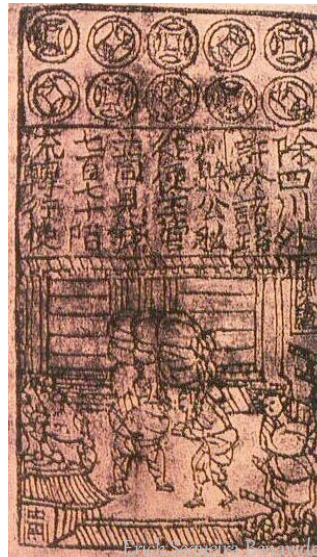 除四川外
許於諸路
州縣公私
從便主管
並同見錢
七百七十陌
流轉行使
Erick